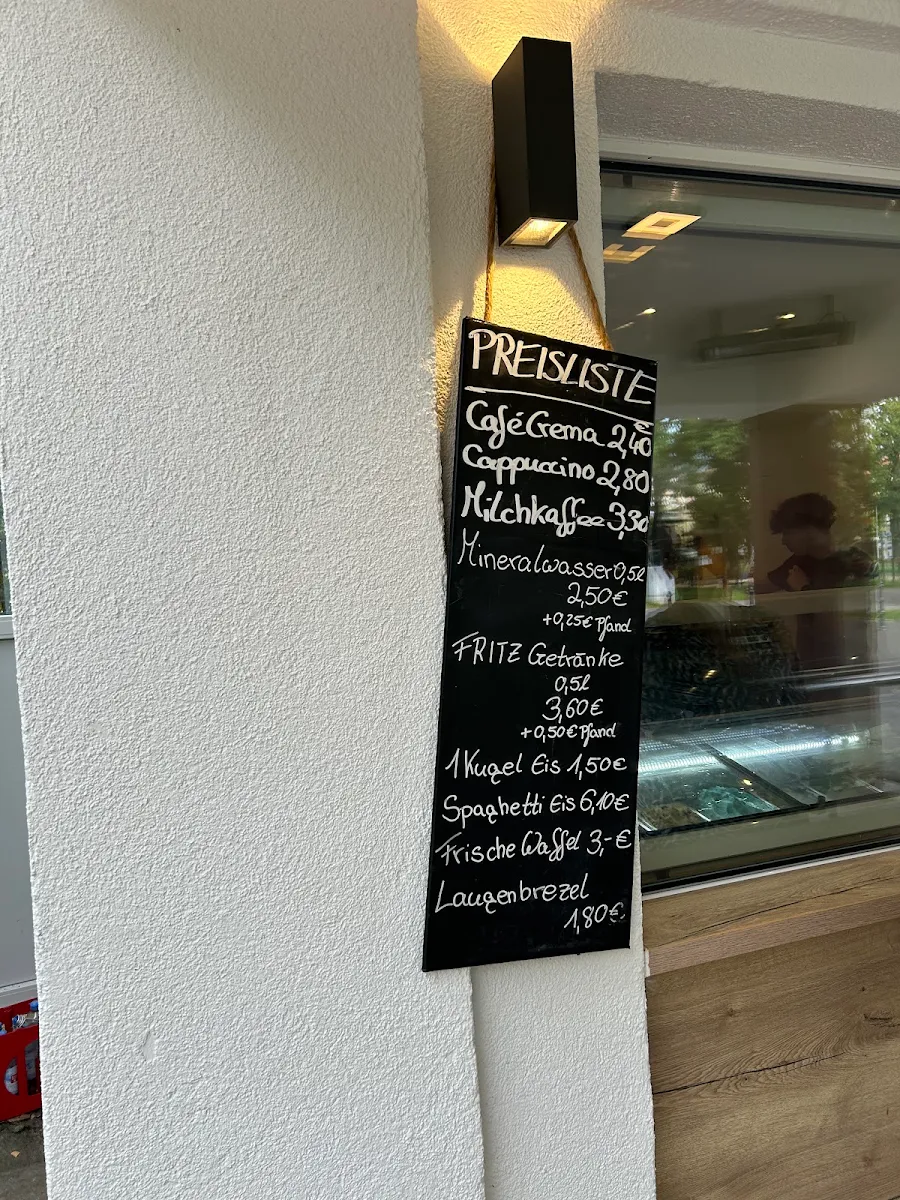 PREISLISTE
€
Café Crema 2,40
Cappuccino 2,80
Milchkaffee 3,30
Mineralwasser 0,5l
2,50€
+0,25€ Pfand
FRITZ Getränke
0,5l
3,60€
+0,50€ Pfand
1 Kugel Eis 1,50€
Spaghetti Eis 6,10€
Frische Waffel 3,-€
Laugenbrezel
1,80€